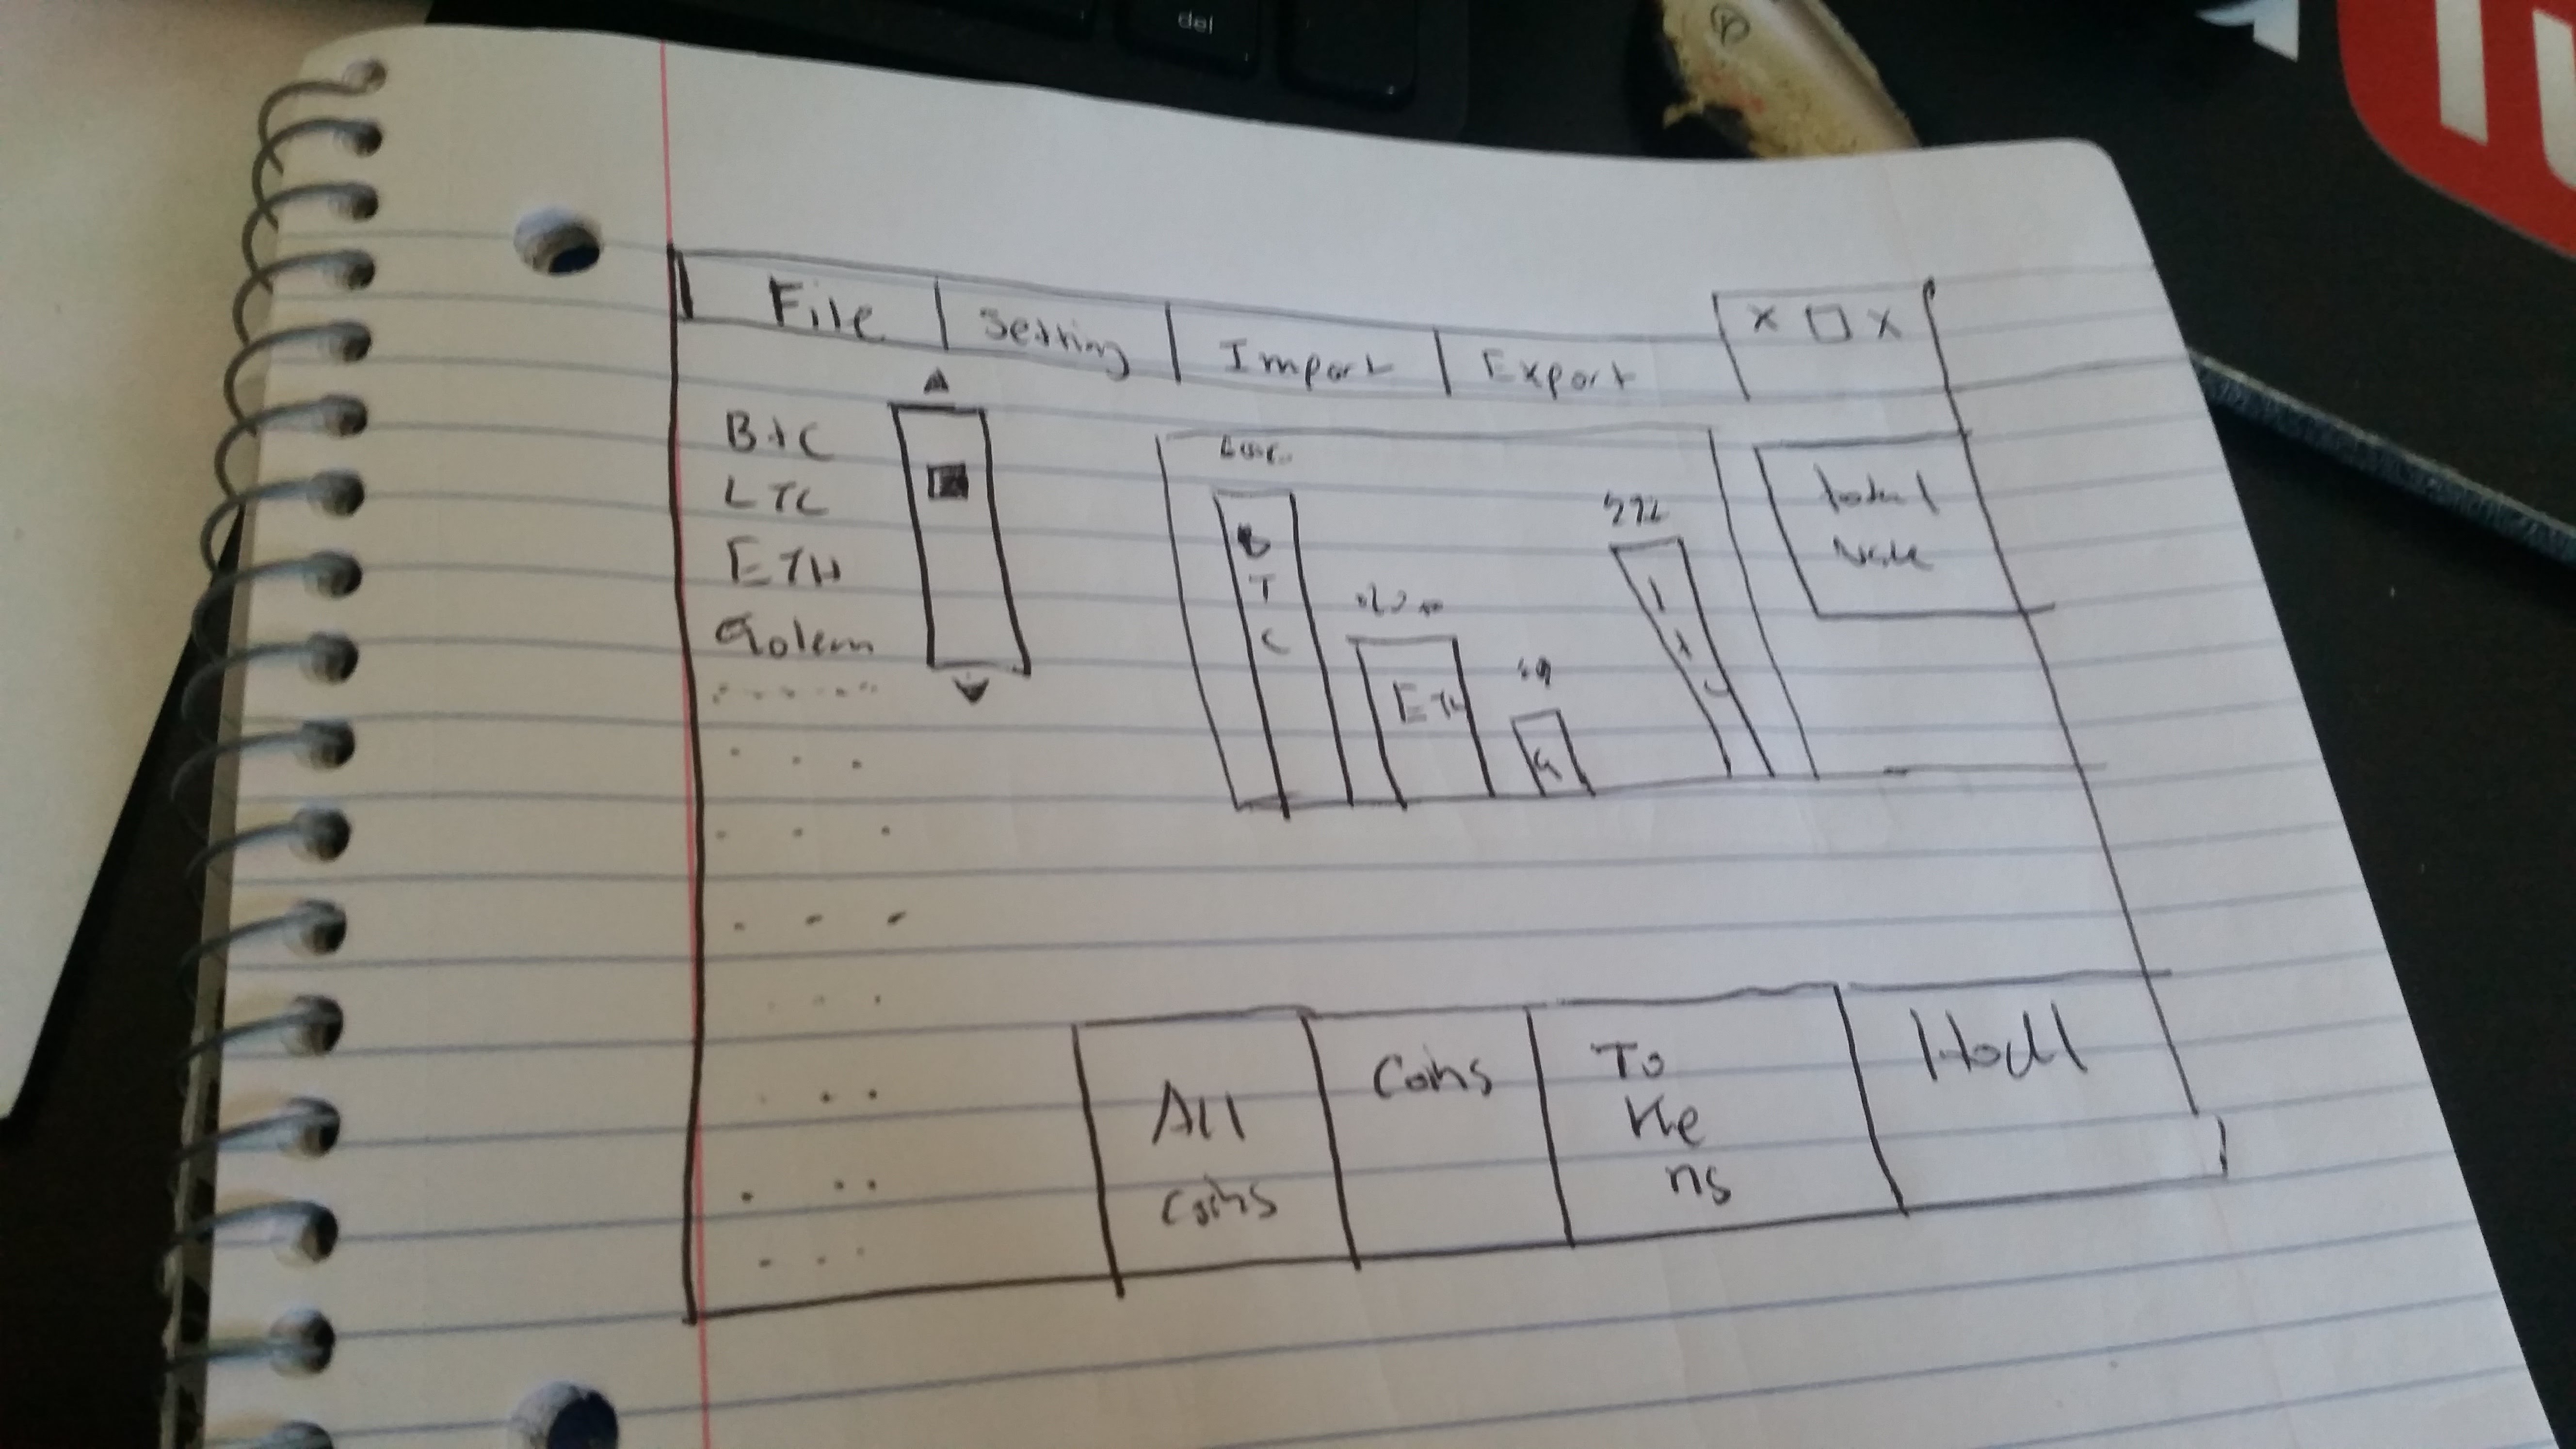 del
File
Setting
Import
Export
X □ X
BTC
LTC
ETH
Golem
B
T
C
ETH
G
total
All
coins
Coins
To
Ke
ns
Hodl